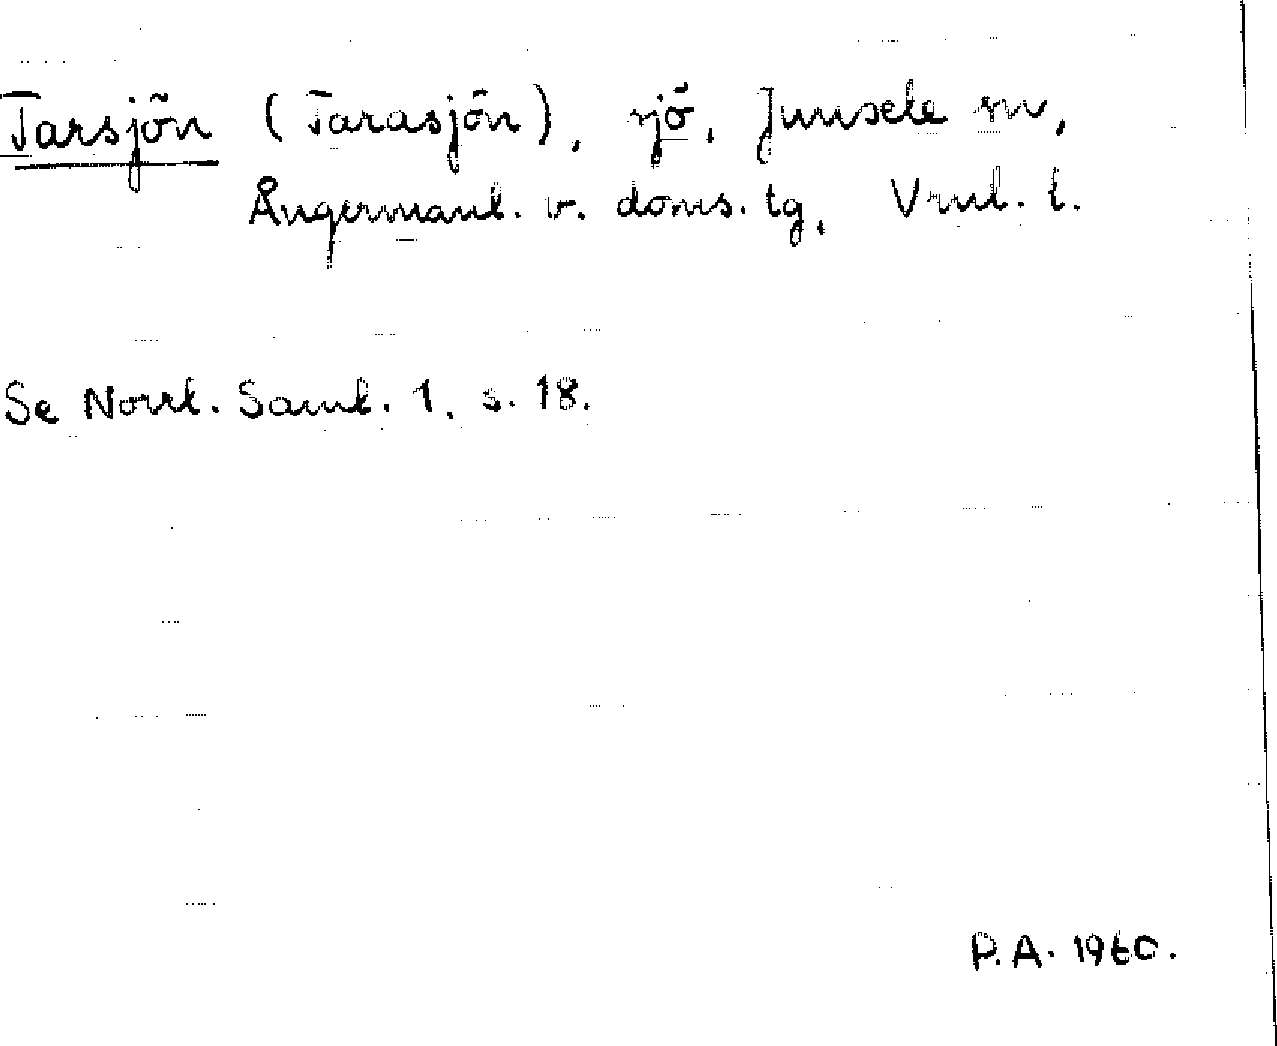 Tarsjön (Tarasjön), sjö, Junsele sn,
Ångermanl. v. doms. tg, Vrnl. l.
Se Norrl. Saml. 1, s. 18.
P.A. 1960.